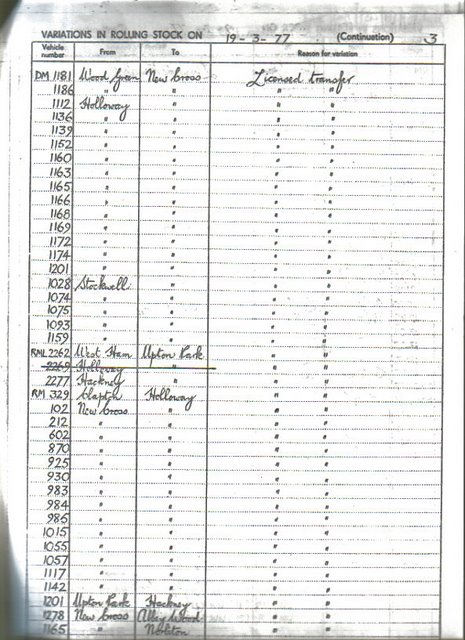 VARIATIONS IN ROLLING STOCK ON 19-3-77 (Continuation) 3
Vehicle number From To Reason for variation
DM 1181 Wood Green New Cross Licensed transfer
1186 " " " "
1112 Holloway " " "
1136 " " " "
1139 " " " "
1152 " " " "
1160 " " " "
1163 " " " "
1165 " " " "
1166 " " " "
1168 " " " "
1169 " " " "
1172 " " " "
1174 " " " "
1201 " " " "
1028 Stockwell " " "
1074 " " " "
1075 " " " "
1093 " " " "
1159 " " " "
RML 2262 West Ham Upton Park " "
2269 Holloway " " "
2277 Hackney " " "
RM 329 Clapton Holloway " "
102 New Cross " " "
212 " " " "
602 " " " "
870 " " " "
925 " " " "
930 " " " "
983 " " " "
984 " " " "
985 " " " "
1015 " " " "
1055 " " " "
1057 " " " "
1117 " " " "
1142 " " " "
1201 Upton Park Hackney " "
1278 New Cross Abbey Wood " "
1165 " Norbiton " "